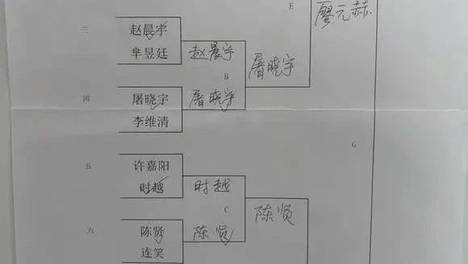 E
廖元赫
三
赵晨宇
芈昱廷
赵晨宇
B
屠晓宇
四
屠晓宇
李维清
屠晓宇
G
五
许嘉阳
时越
时越
C
陈贤
六
陈贤
连笑
陈贤